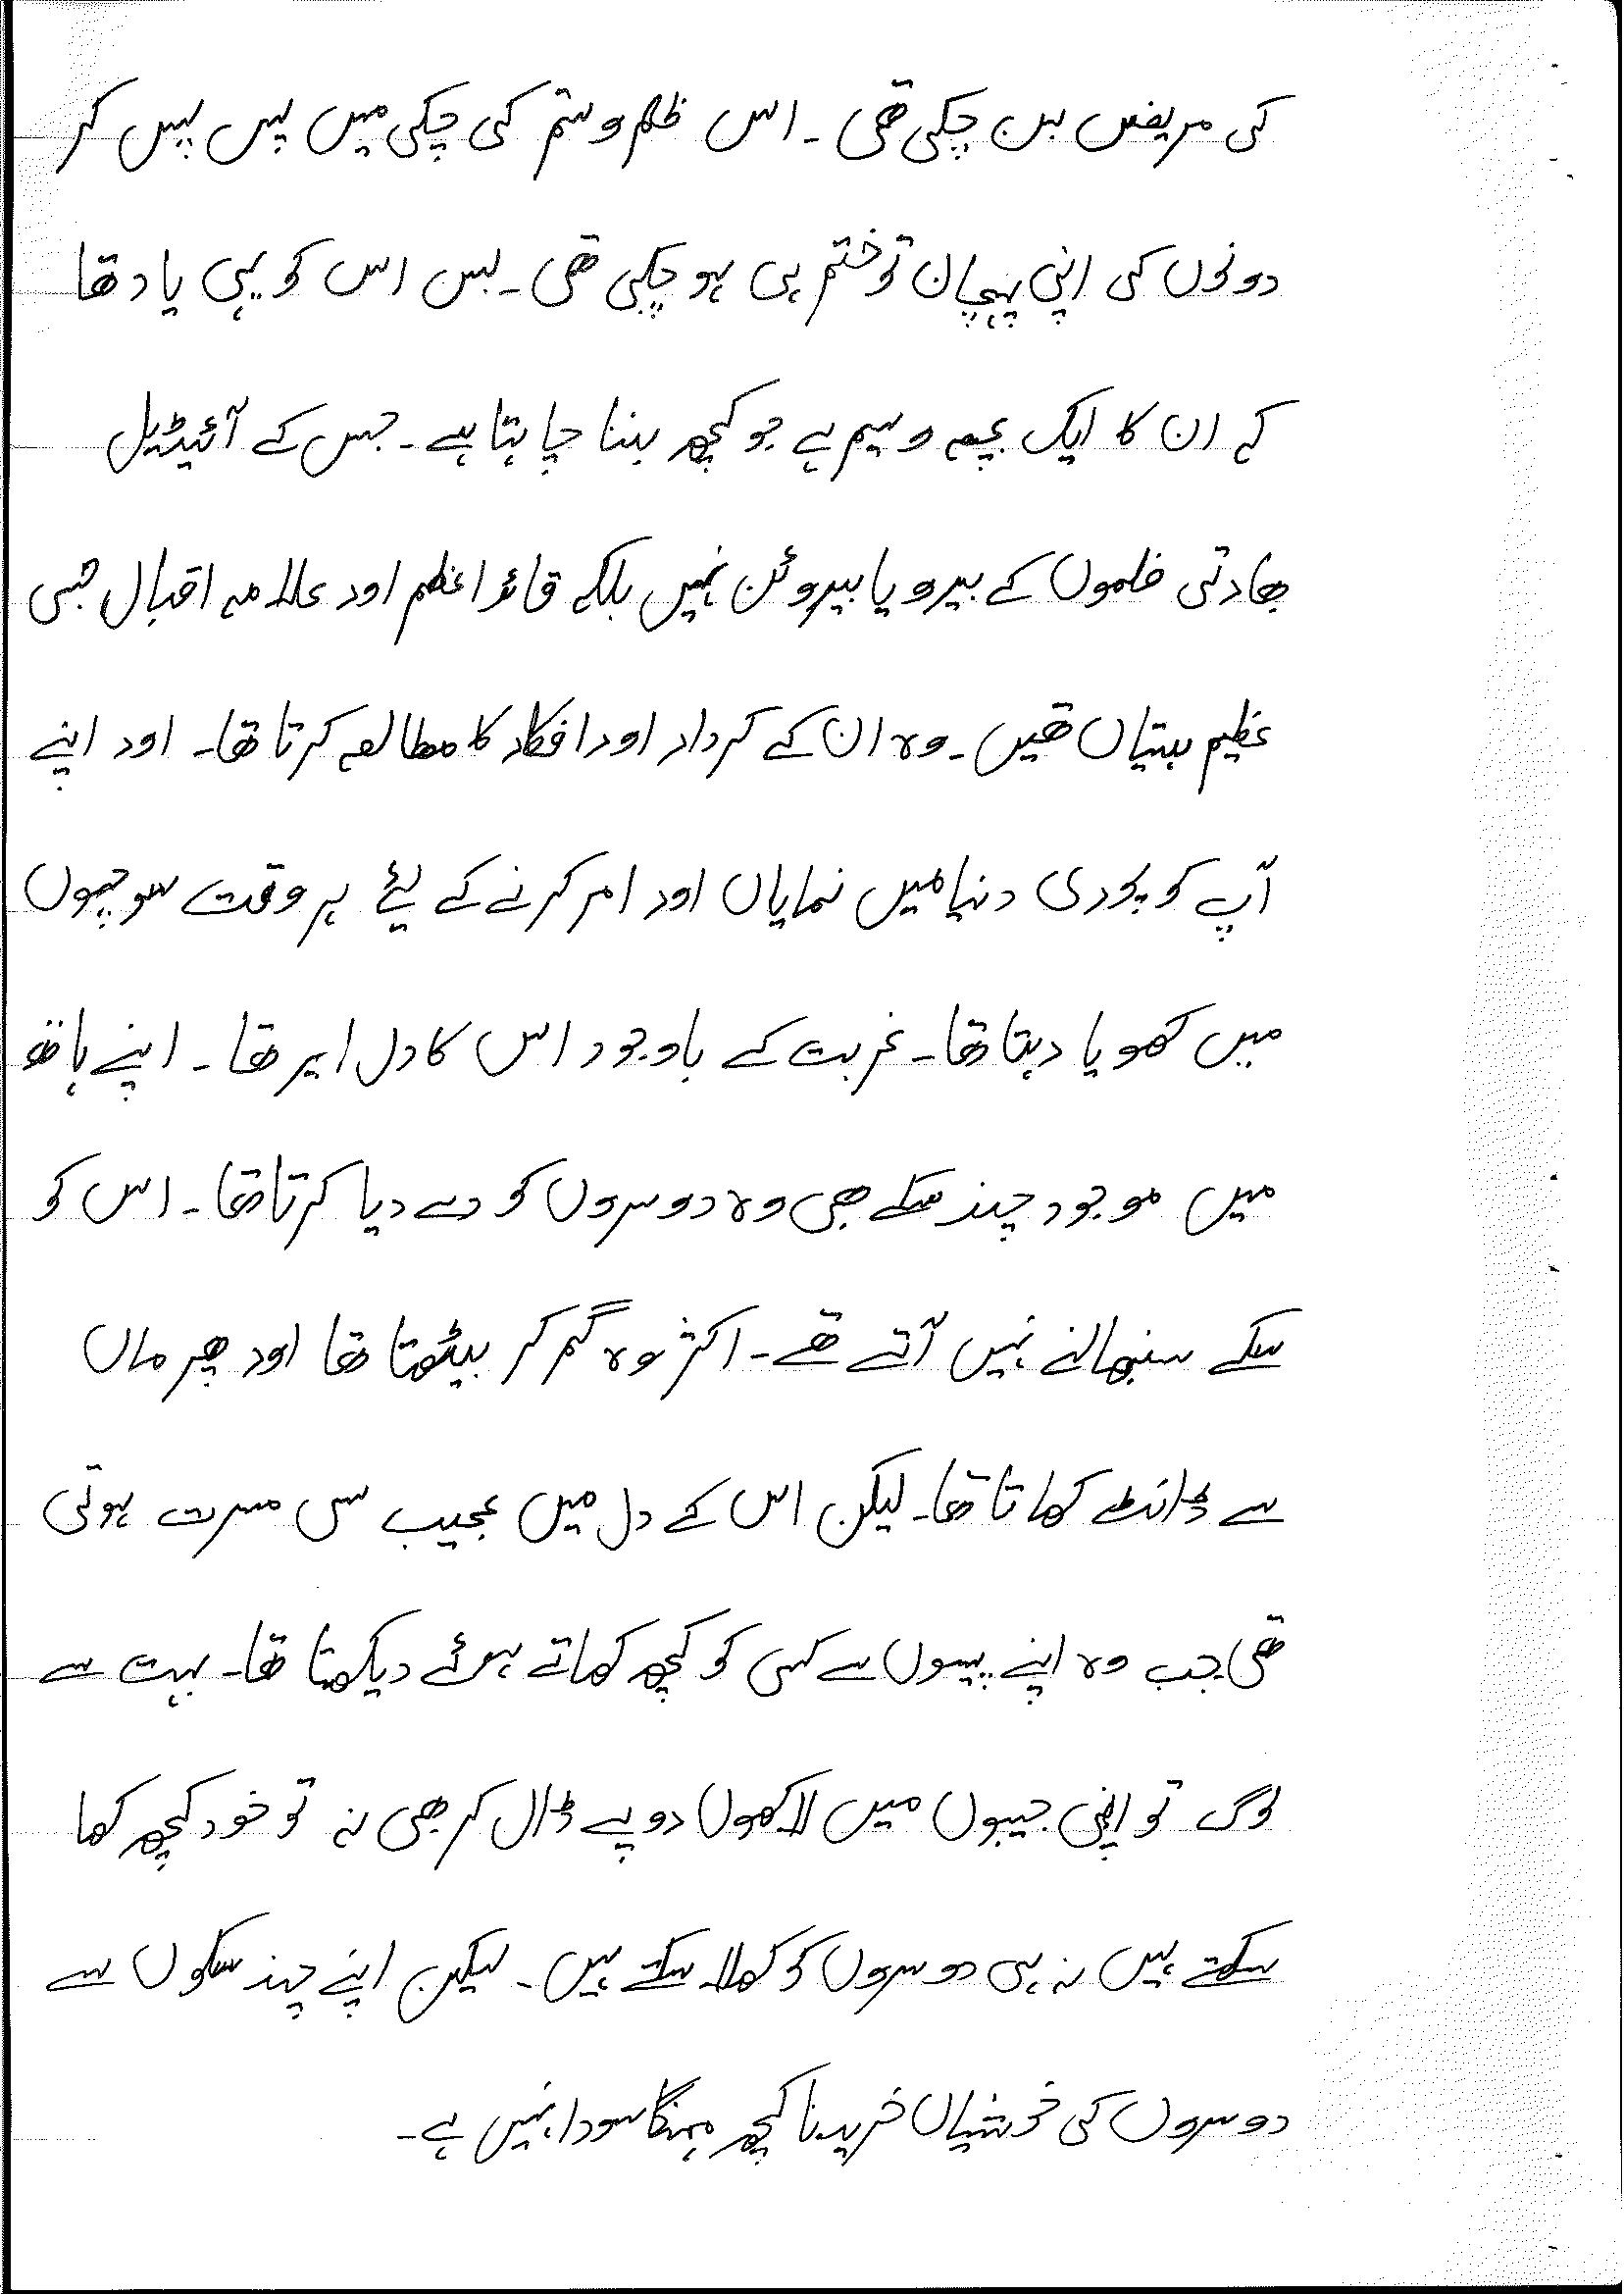 کی مریض بن چکی تھی ۔ اس ظلم و ستم کی چکی میں پس پس کر
دونوں کی اپنی پہچان تو ختم ہی ہو چکی تھی ۔ بس اس کو یہی یاد تھا
کہ ان کا ایک بچہ وسیم ہے جو کچھ بننا چاہتا ہے ۔ جس کے آئیڈیل
بھارتی فلموں کے ہیرو یا ہیروئن نہیں بلکہ قائد اعظم اور علامہ اقبال جیسی
عظیم ہستیاں تھیں ۔ وہ ان کے کردار اور افکار کا مطالعہ کرتا تھا ۔ اور اپنے
آپ کو پوری دنیا میں نمایاں اور امر کرنے کے لئے ہر وقت سوچوں
میں کھویا رہتا تھا ۔ غربت کے باوجود اس کا دل امیر تھا ۔ اپنے ہاتھ
میں موجود چند سکے بھی وہ دوسروں کو دے دیا کرتا تھا ۔ اس کو
سکے سنبھالنے نہیں آتے تھے ۔ اکثر وہ گم کر بیٹھتا تھا اور پھر ماں
سے ڈانٹ کھاتا تھا ۔ لیکن اس کے دل میں عجیب سی مسرت ہوتی
تھی جب وہ اپنے پیسوں سے کسی کو کچھ کھاتے ہوئے دیکھتا تھا ۔ بہت سے
لوگ تو اپنی جیبوں میں لاکھوں روپے ڈال کر بھی نہ تو خود کچھ کھا
سکتے ہیں نہ ہی دوسروں کو کھلا سکتے ہیں ۔ لیکن اپنے چند سکوں سے
دوسروں کی خوشیاں خریدنا کچھ مہنگا سودا نہیں ہے ۔